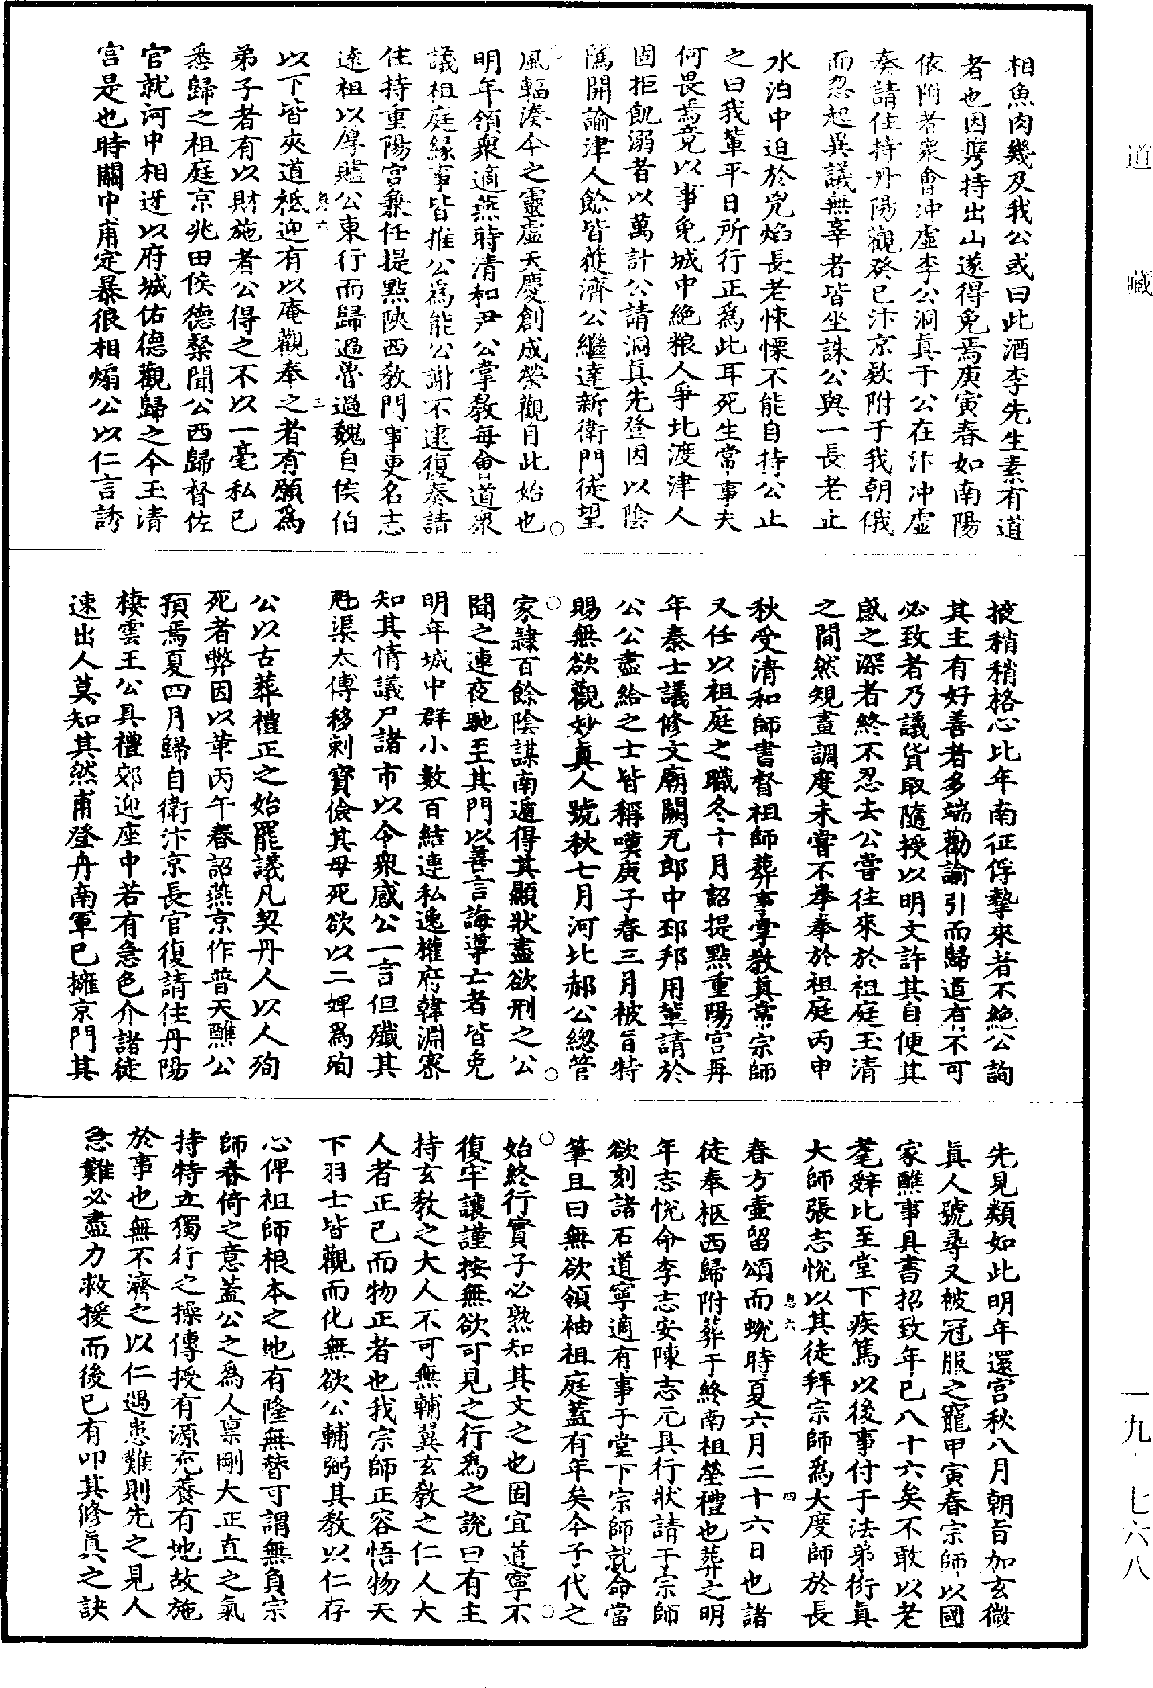 道藏
相魚肉幾及我公或曰此酒李先生素有道
者也因攜持出山遂得免焉庚寅春如南陽
依附者衆會沖虛李公洞真于公在汴沖虛
奏請住持丹陽觀癸巳汴京欵附于我朝俄
而忽起異議無辜者皆坐誅公與一長老止
水泊中迫於兇焰長老悚慄不能自持公止
之曰我輩平日所行正爲此耳死生常事夫
何畏焉竟以事免城中絶粮人爭北渡津人
固拒飢溺者以萬計公請洞真先登因以陰
隲開諭津人餘皆獲濟公繼達新衛門徒望
風輻湊今之靈虛天慶創成榮觀自此始也
明年領衆適燕時清和尹公掌教每會道衆
議祖庭緣事皆推公爲能公謝不逮復奏請
住持重陽宮兼任提點陝西教門事更名志
遠祖以厚贐公東行而歸過魯過魏自侯伯
以下皆夾道祗迎有以庵觀奉之者有願爲
弟子者有以財施者公得之不以一毫私己
悉歸之祖庭京兆田侯德粲聞公西歸督佐
官就河中相迓以府城佑德觀歸之今玉清
宮是也時關中甫定暴狠相煽公以仁言誘
掖稍稍格心比年南征俘摯來者不絶公詢
其主有好善者多端勸諭引而歸道有不可
必致者乃議貨取隨授以明文許其自便其
感之深者終不忍去公嘗往來於祖庭玉清
之間然規畫調度未嘗不拳拳於祖庭丙申
秋受清和師書督祖師葬事掌教真常宗師
又任以祖庭之職冬十月詔提點重陽宮再
年秦士議修文廟闕兀郎中邳邦用輩請於
公公盡給之士皆稱嘆庚子春三月被旨特
賜無欲觀妙真人號秋七月河北郝公總管
家隷百餘陰謀南遁得其顯狀盡欲刑之公
聞之連夜馳至其門以善言誨導亡者皆免
明年城中群小數百結連私逸權府韓淵審
知其情議尸諸市以令衆感公一言但殲其
魁渠太傅移剌寶儉其母死欲以二婢爲殉
公以古葬禮正之始罷議凡契丹人以人殉
死者弊因以革丙午春詔燕京作普天醮公
預焉夏四月歸自衛汴京長官復請住丹陽
棲雲王公具禮郊迎座中若有急色介諸徒
速出人莫知其然甫登舟南軍已擁京門其
先見類如此明年還宮秋八月朝旨加玄微
真人號尋又被冠服之寵甲寅春宗師以國
家醮事具書招致年已八十六矣不敢以老
耄辭比至堂下疾篤以後事付于法弟衍真
大師張志悅以其徒拜宗師爲大度師於長
春方壺留頌而蛻時夏六月二十六日也諸
徒奉柩西歸附葬于終南祖塋禮也葬之明
年志悅命李志安陳志元具行狀請于宗師
欲刻諸石道寧適有事于堂下宗師就命當
筆且曰無欲領袖祖庭蓋有年矣今子代之
始終行實子必熟知其文之也固宜道寧不
復牢讓謹按無欲可見之行爲之說曰有主
持玄教之大人不可無輔翼玄教之仁人大
人者正己而物正者也我宗師正容悟物天
下羽士皆觀而化無欲公輔弼其教以仁存
心俾祖師根本之地有隆無替可謂無負宗
師眷倚之意蓋公之爲人稟剛大正直之氣
持特立獨行之操傳授有源充養有地故施
於事也無不濟之以仁遇患難則先之見人
急難必盡力救援而後已有叩其修真之訣
一九·七六八